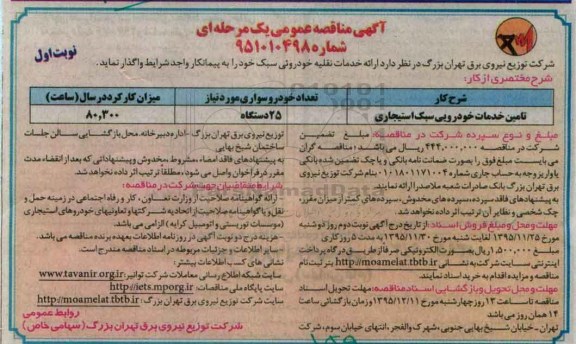 آگهی مناقصه عمومی یک مرحله ای
شماره ۹۵۱۰۱۰۴۹۸
نوبت اول
شرکت توزیع نیروی برق تهران بزرگ در نظر دارد ارائه خدمات نقلیه خودروئی سبک خود را به پیمانکار واجد شرایط واگذار نماید.
شرح مختصری از کار:
شرح کار
تعداد خودرو سواری مورد نیاز
میزان کارکرد در سال (ساعت)
تامین خدمات خودرویی سبک استیجاری
۲۵ دستگاه
۸۰,۳۰۰
مبلغ و نوع سپرده شرکت در مناقصه: مبلغ تضمین
شرکت در مناقصه ۴۴۲,۰۰۰,۰۰۰ ریال می باشد؛ مناقصه گران
می بایست مبلغ فوق را بصورت ضمانت نامه بانکی و یا چک تضمین شده بانکی
یا واریز وجه به حساب جاری شماره ۰۱۰۱۸۰۱۱۷۱۰۰۴ بنام شرکت توزیع نیروی
برق تهران بزرگ بانک صادرات شعبه ملاصدرا ارائه نمایند.
به پیشنهادهای فاقد سپرده، سپرده های مخدوش، سپرده های کمتر از میزان مقرر،
چک شخصی و نظایر آن ترتیب اثر داده نخواهد شد.
مهلت و محل و مبلغ فروش اسناد: از تاریخ درج آگهی نوبت دوم روز دوشنبه
مورخ ۱۳۹۵/۱۱/۲۵ لغایت شنبه مورخ ۱۳۹۵/۱۱/۳۰ به مدت ۵ روز کاری
مبلغ ۱,۵۰۰,۰۰۰ ریال بصورت الکترونیکی صرفاً از طریق درگاه پرداخت
اینترنتی سایت شرکت به نشانی http://moamelat.tbtb.ir بنر ثبت نام
مناقصه و مزایده اقدام به خرید اسناد نمایند.
مهلت و محل تحویل و بازگشایی اسناد مناقصه: مهلت تحویل اسناد
مناقصه تا ساعت ۱۳ روز چهارشنبه مورخ ۱۳۹۵/۱۲/۱۱ و زمان بازگشائی ساعت
۱۴ همان روز می باشد
تهران - خیابان شیخ بهایی جنوبی، شهرک والفجر، انتهای خیابان سوم، شرکت
توزیع نیروی برق تهران بزرگ - اداره دبیرخانه. محل بازگشایی سالن جلسات
ساختمان شیخ بهایی
به پیشنهادهای فاقد امضاء، مشروط، مخدوش و پیشنهاداتی که بعد از انقضاء مدت
مقرر در فراخوان واصل می شود، مطلقا ترتیب اثر داده نخواهد شد.
شرایط متقاضیان جهت شرکت در مناقصه:
ارائه گواهینامه صلاحیت از وزارت تعاون، کار و رفاه اجتماعی در زمینه حمل و
نقل و یا گواهینامه صلاحیت از اتحادیه شرکتها و تعاونیهای خودروهای استیجاری
(موسسات توریستی و اتومبیل کرایه) الزامی می باشد.
- هزینه درج دو نوبت آگهی در روزنامه اطلاعات بعهده برنده مناقصه می باشد.
- سایر اطلاعات و جزئیات مربوطه در اسناد مناقصه مندرج است.
نشانی های کسب اطلاعات بیشتر:
سایت شبکه اطلاع رسانی معاملات شرکت توانیر: www.tavanir.org.ir
سایت پایگاه ملی مناقصات: http://iets.mporg.ir
سایت شرکت توزیع نیروی برق تهران بزرگ: http://moamelat.tbtb.ir
روابط عمومی
شرکت توزیع نیروی برق تهران بزرگ (سهامی خاص)